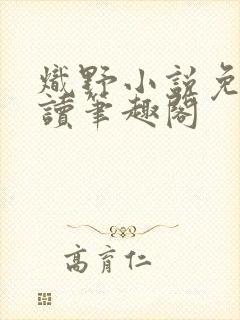 熾野小說免
讀筆趣閣
高育仁